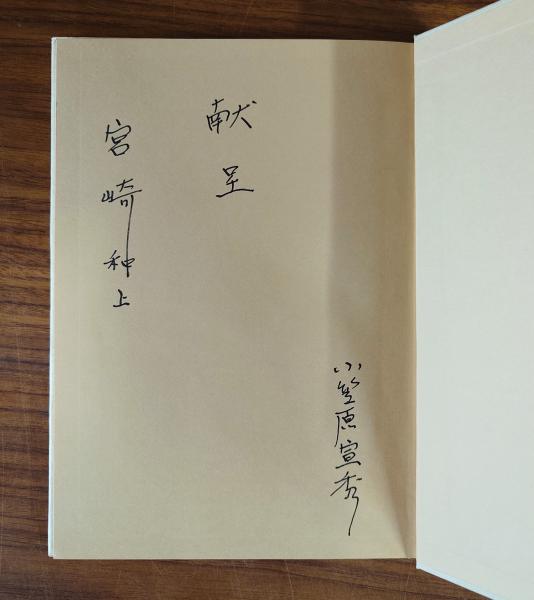 献呈
宮崎和上
小笠原宣秀